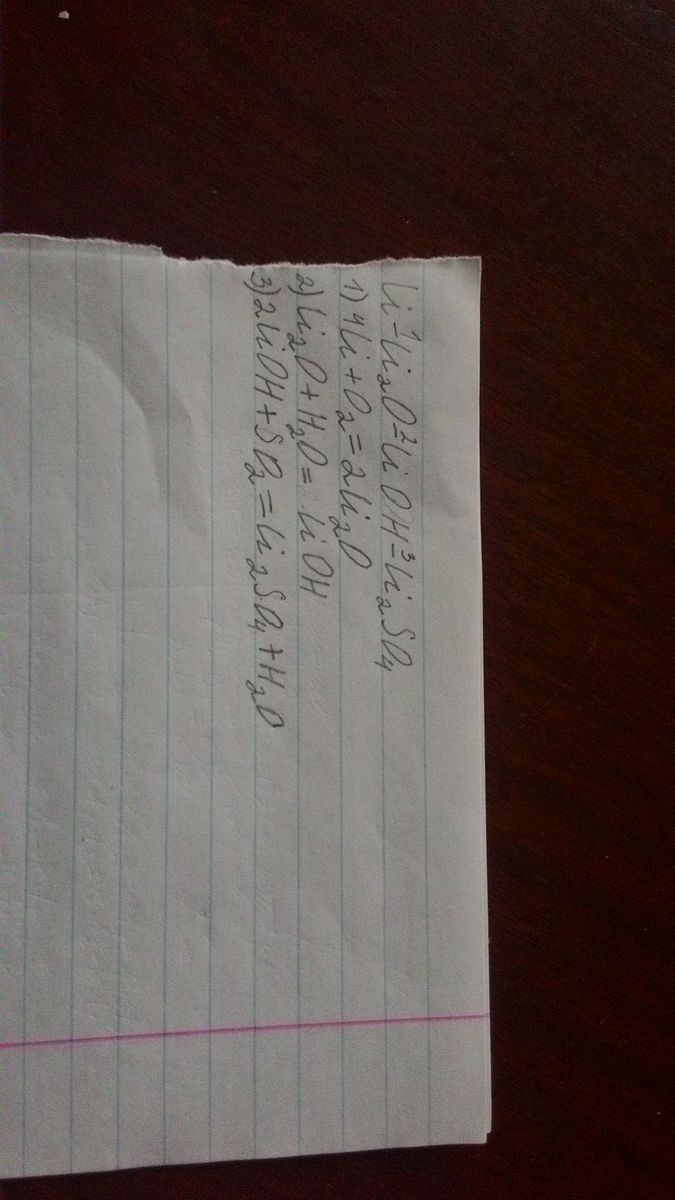 Li-¹Li₂O-²LiOH-³Li₂SO₄
1) 4Li + O₂ = 2Li₂O
2) Li₂O + H₂O = LiOH
3) 2LiOH + SO₂ = Li₂SO₄ + H₂O